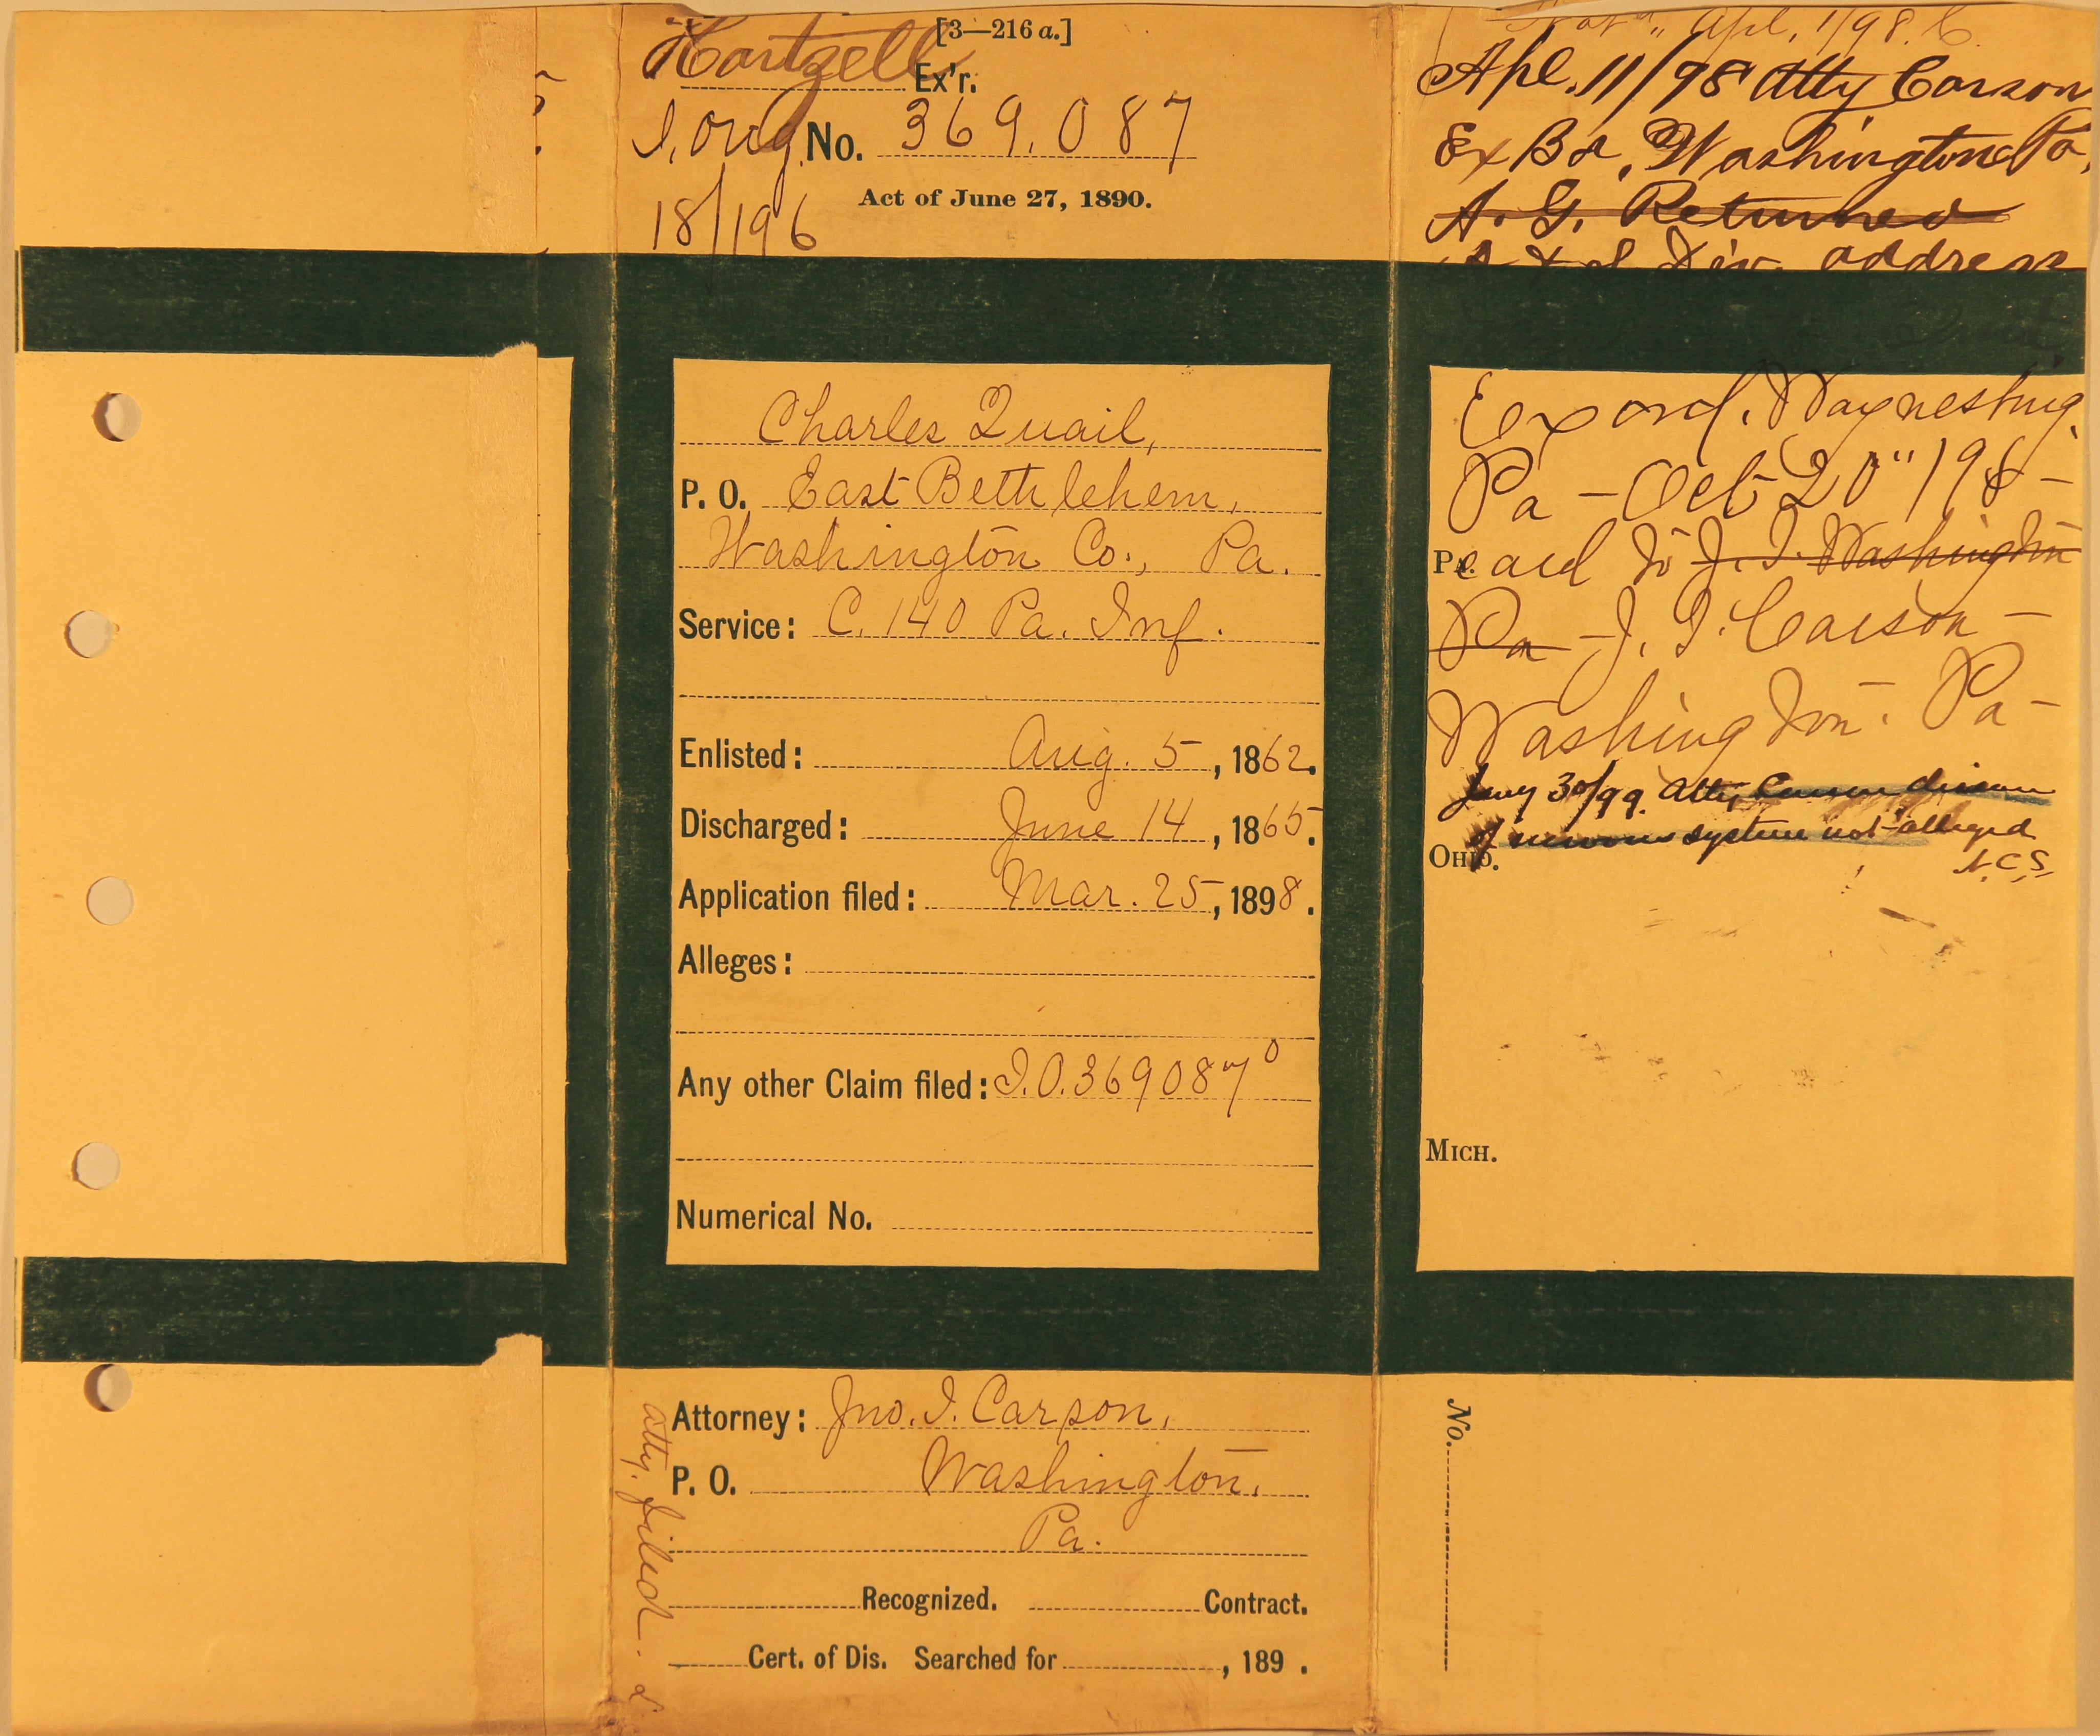 [3—216 a.]
Hartzell Ex'r.
I. Orig. No. 369.087
18/196
Act of June 27, 1890.
Charles Quail,
P. O. East Bethlehem,
Washington Co., Pa.
Service: C. 140 Pa. Inf.
Enlisted: Aug. 5, 1862.
Discharged: June 14, 1865.
Application filed: Mar. 25, 1898.
Alleges:
Any other Claim filed: I.O. 369087 0
Numerical No.
Attorney: Jno. I. Carson,
P. O. Washington,
Pa.
Recognized. Contract.
Cert. of Dis. Searched for , 189 .
atty. filed.
Apl. 1/98. C
Apl. 11/98 Atty Carson
Ex Bd, Washington Pa,
A. G. Returned
Div. address
Ex ord. Waynesburg
Pa - Oct 20" 198 -
card to J. I. Washington
Pa - J. I. Carson -
Washington. Pa -
Jany 30/99. Atty Carson disease
of nervous system not alleged
N.C.S.
Pa.
Ohio.
Mich.
No.